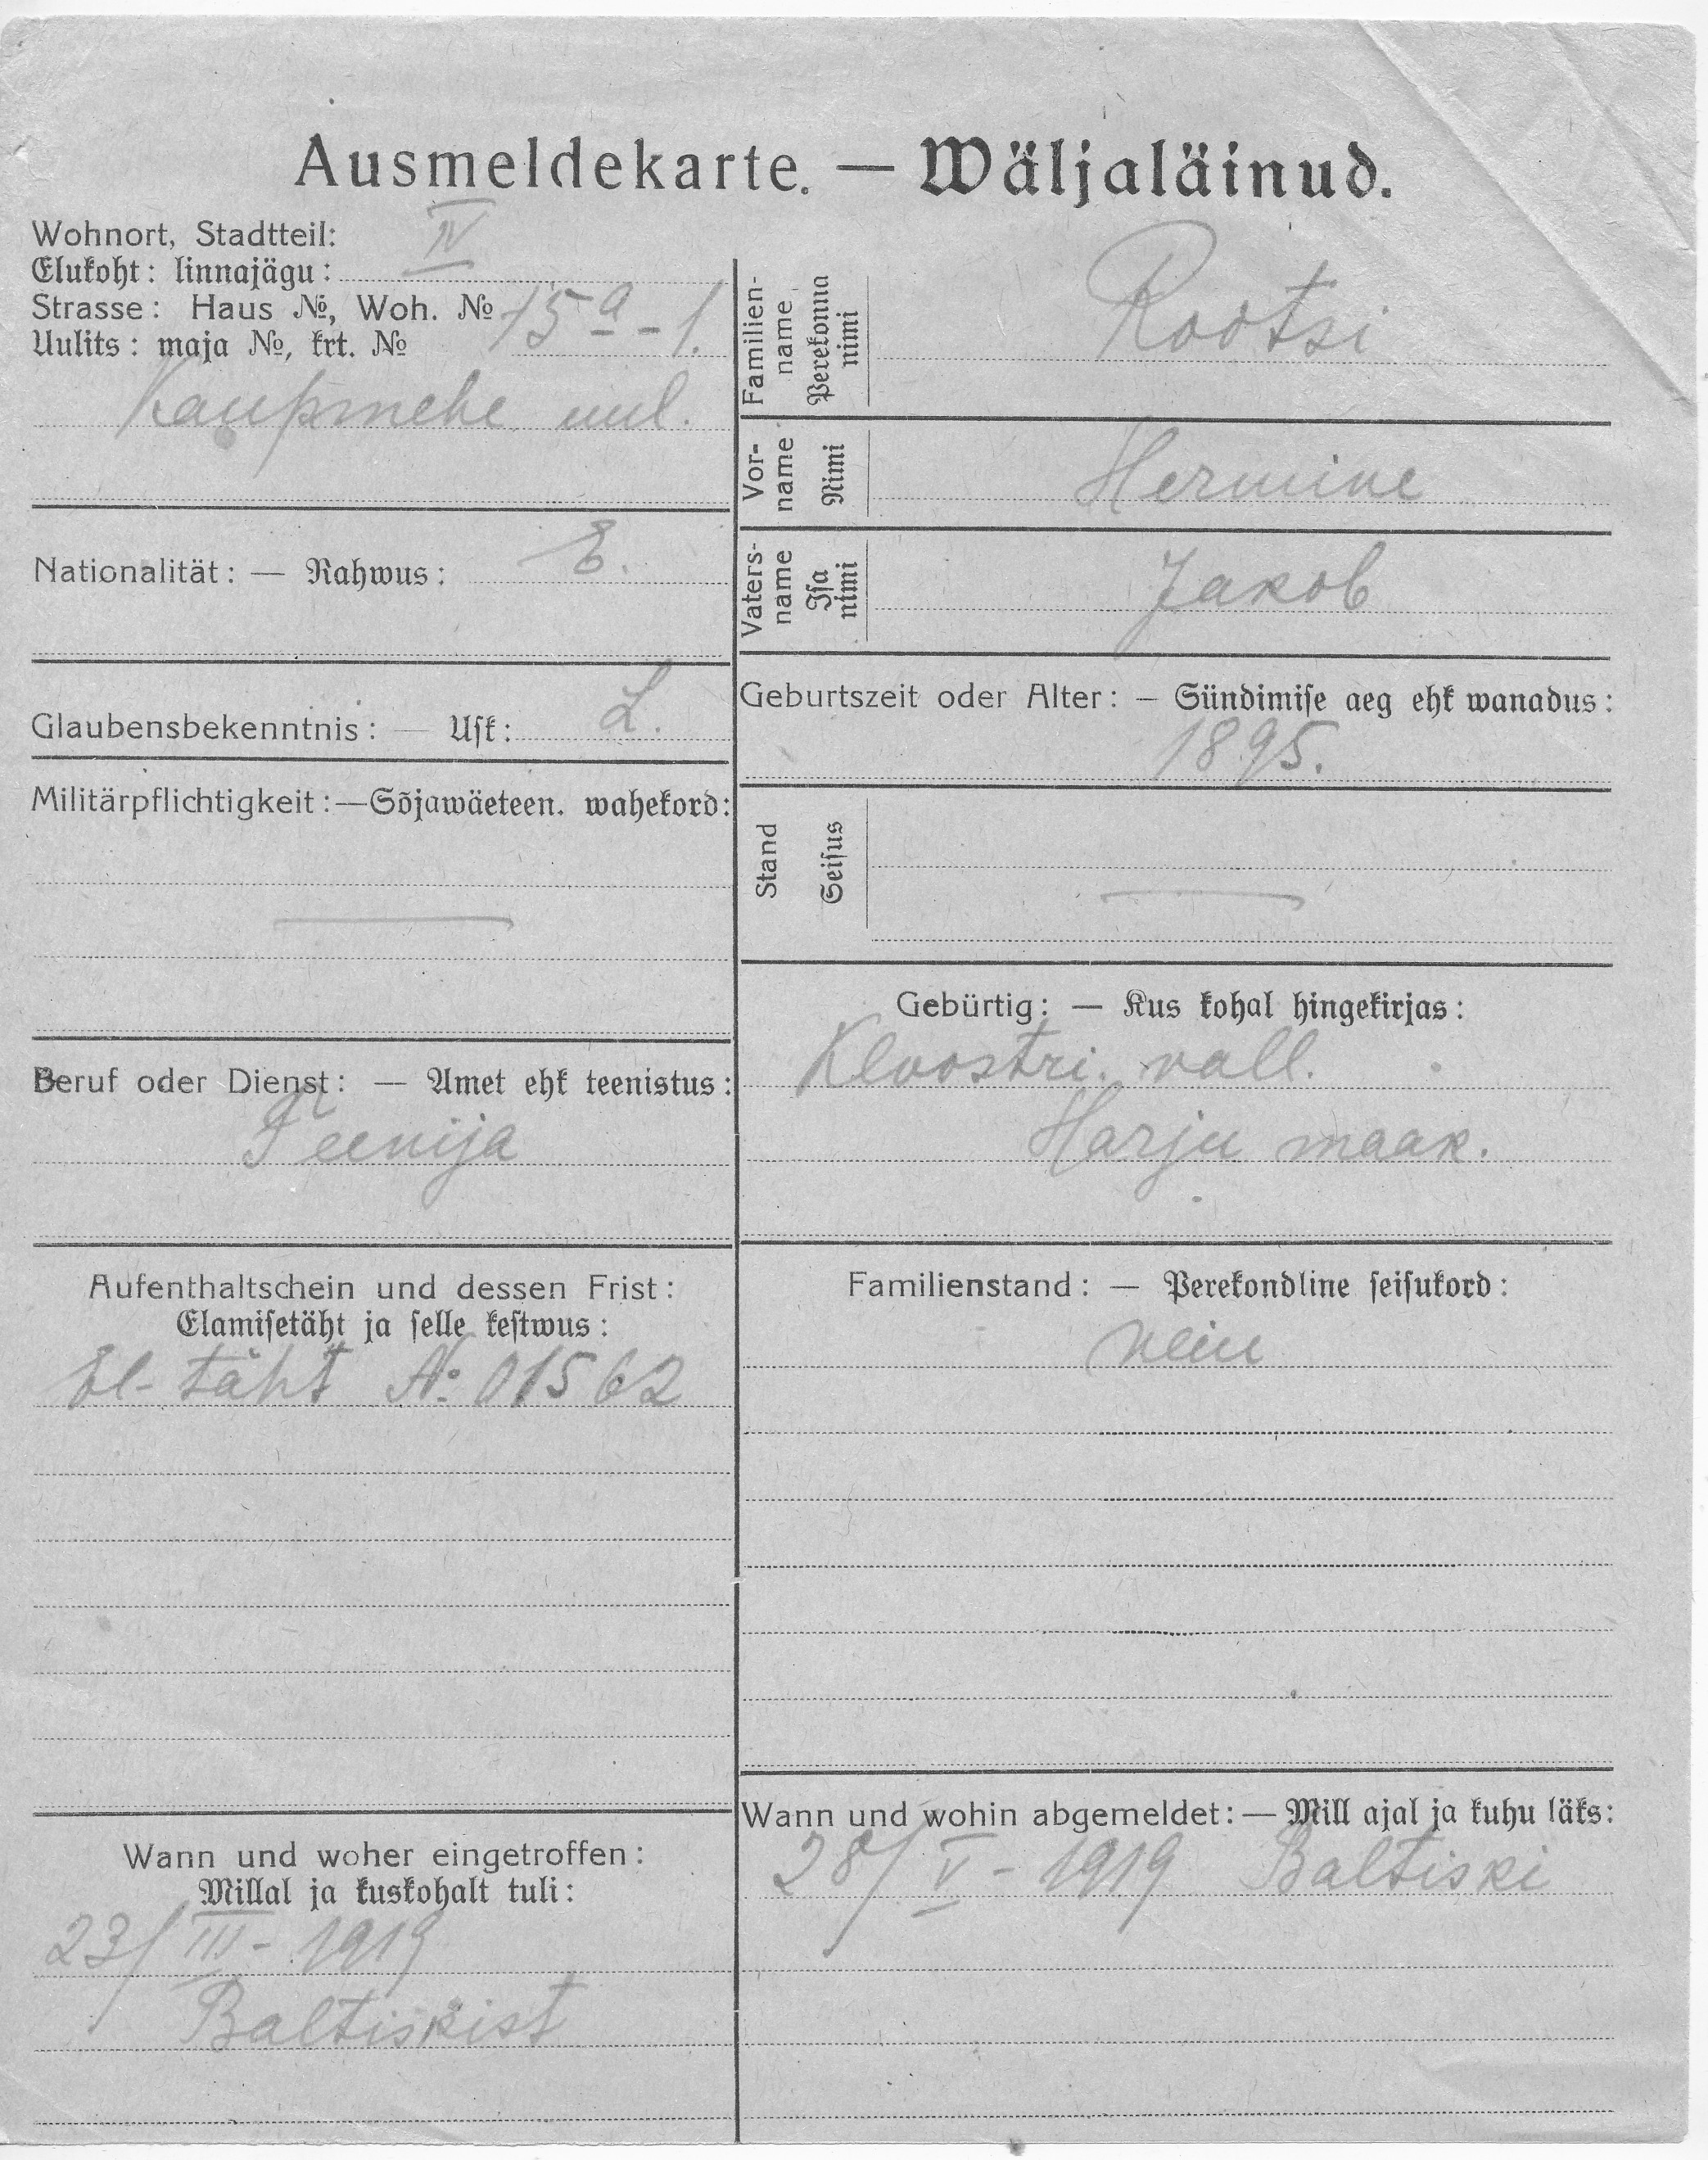 Ausmeldekarte. — Wäljaläinud.
Wohnort, Stadtteil:
Elukoht: linnajägu: IV
Strasse: Haus №, Woh. №
Uulits: maja №, krt. № 15ª-1.
Kaupmehe uul.
Nationalität: — Rahwus: E.
Glaubensbekenntnis: — Usk: L.
Militärpflichtigkeit:—Sõjawäeteen. wahekord:
Beruf oder Dienst: — Amet ehk teenistus:
Teenija
Aufenthaltschein und dessen Frist:
Elamisetäht ja selle kestwus:
El-täht № 01562
Wann und woher eingetroffen:
Millal ja kuskohalt tuli:
23/III- 1919
Baltiskist
Familien-
name
Perekonna
nimi
Rootsi
Vor-
name
Nimi
Hermine
Vaters-
name
Isa
nimi
Jakob
Geburtszeit oder Alter: — Sündimise aeg ehk wanadus:
1895.
Stand
Seisus
Gebürtig: — Kus kohal hingekirjas:
Kloostri. vall.
Harju maak.
Familienstand: — Perekondline seisukord:
neiu
Wann und wohin abgemeldet: — Mill ajal ja kuhu läks:
28/V-1919 Baltiski